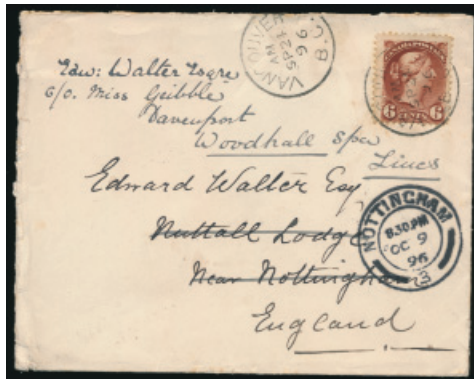 VANCOUVER B.C.
AM
SP 24
96
CANADA POSTAGE
6 CENTS 6
Edw: Walter Esqre
c/o. Miss Gribble
Davenport
Woodhall Spa
Lincs
Edward Walter Esq
Nuttall Lodge
Near Nottingham
England
NOTTINGHAM
8.30 PM
OC 9
96